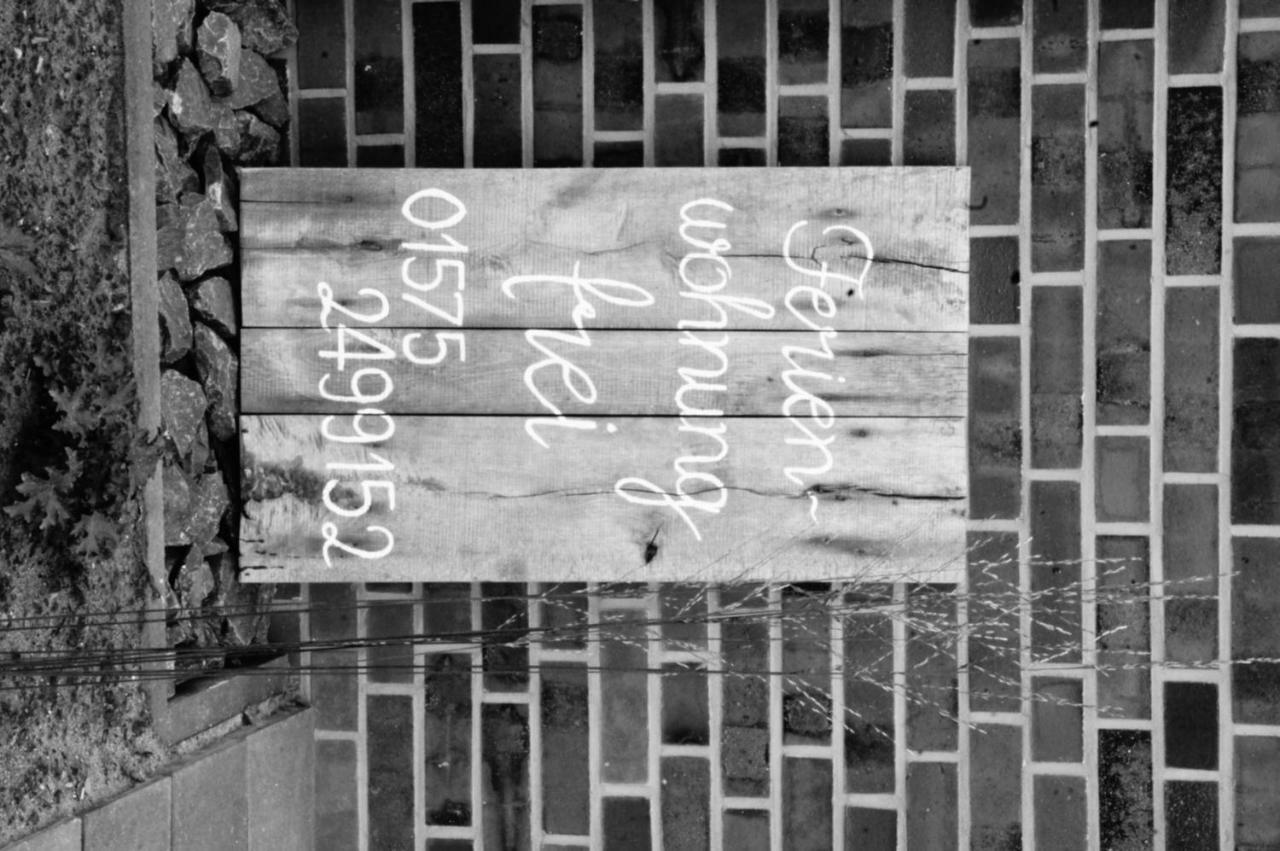 Ferien~
wohnung
frei
01575
2499152